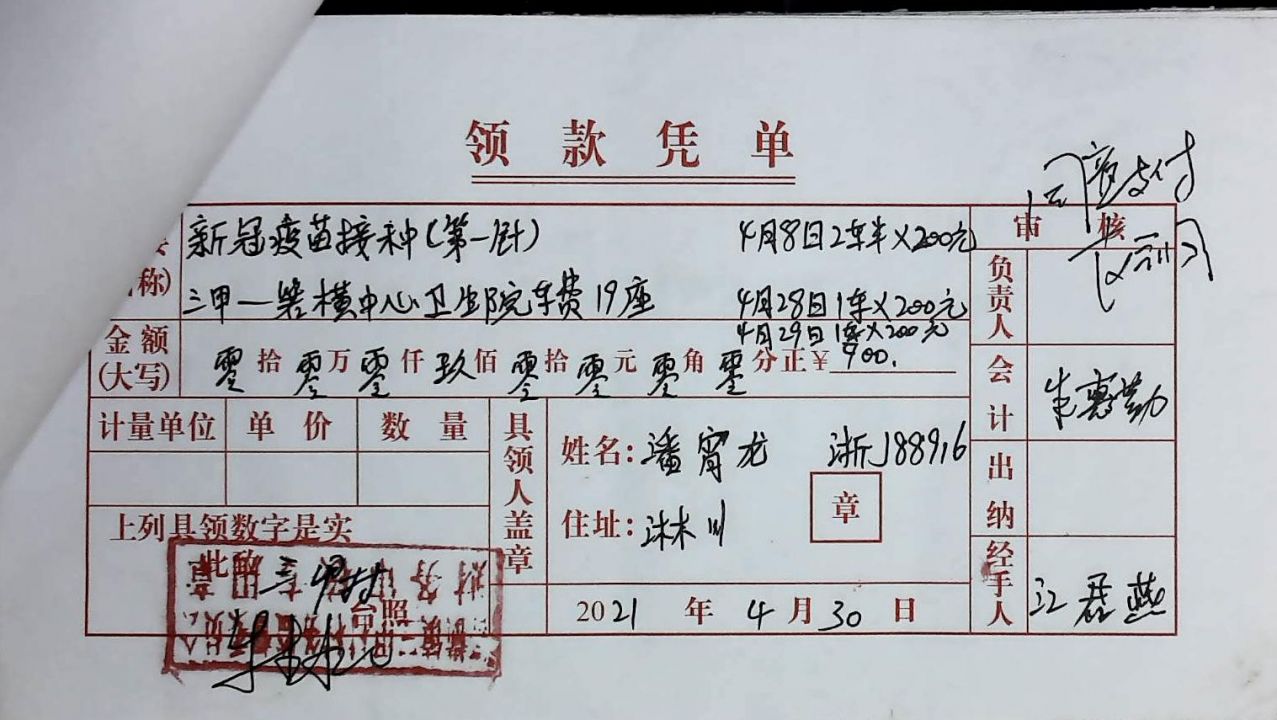 领款凭单
新冠疫苗接种(第一针) 4月8日2车半×200元
称) 三甲一 横中心卫生院车费19座 4月28日1车×200元
4月29日1车×200元
金额(大写) 零拾零万零仟玖佰零拾零元零角零分正¥900.
计量单位 单价 数量
具领人盖章
姓名:潘宵龙 浙J88916
住址:沐川
章
上列具领数字是实
此致
三甲村
台照
2021年4月30日
同意支付
审核
负责人
会计 朱惠勤
出纳
经手人 江 燕